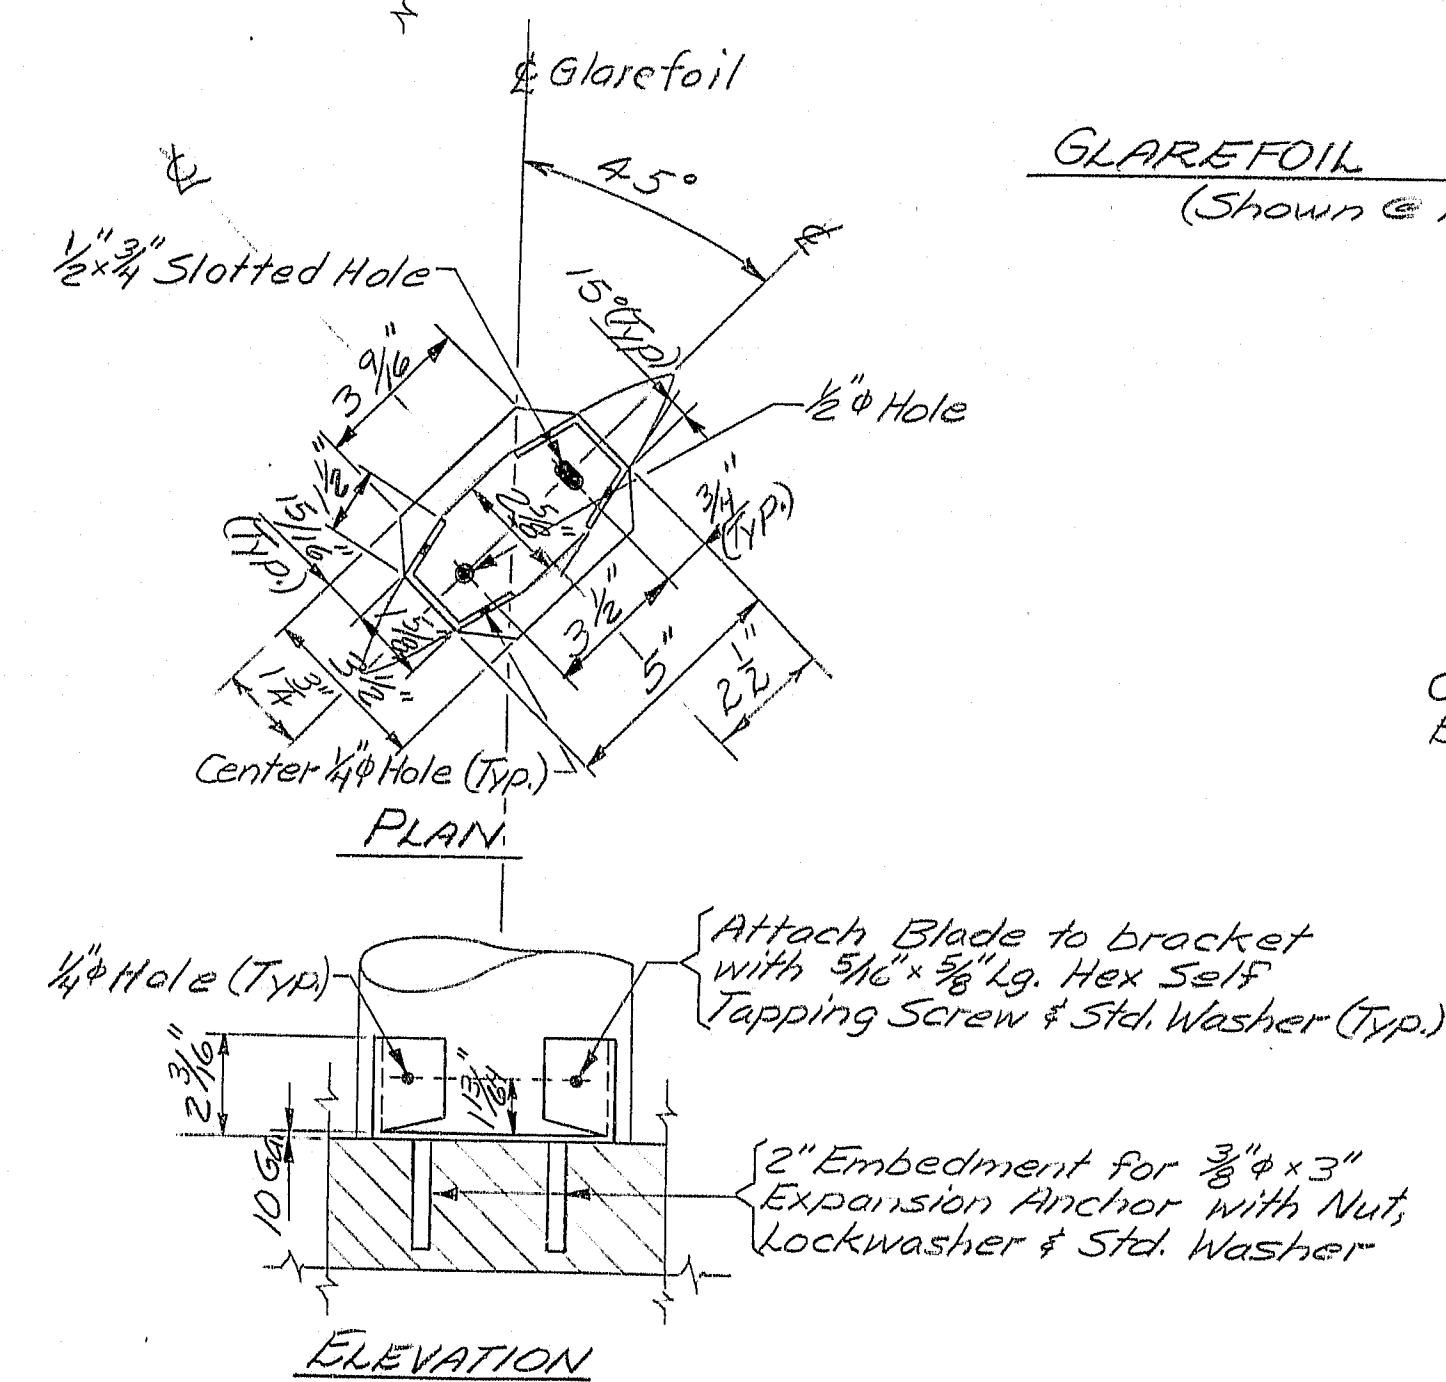 ℄ Glarefoil
GLAREFOIL
(Shown @
℄
45°
℄
1/2" x 3/4" Slotted Hole
15° (Typ.)
3 9/16"
1/2" φ Hole
1 1/2"
15/16"
(Typ.)
2 5/8"
3/4"
(Typ.)
3 1/2"
1 5/8"
5"
2 1/2"
3 1/2"
1 3/4"
Center 1/4" φ Hole (Typ.)
PLAN
Attach Blade to bracket
with 5/16" x 5/8" Lg. Hex Self
Tapping Screw & Std. Washer (Typ.)
1/4" φ Hole (Typ.)
2 3/16"
1 13/64"
10 Ga.
2" Embedment for 3/8" φ x 3"
Expansion Anchor with Nut,
Lockwasher & Std. Washer
ELEVATION